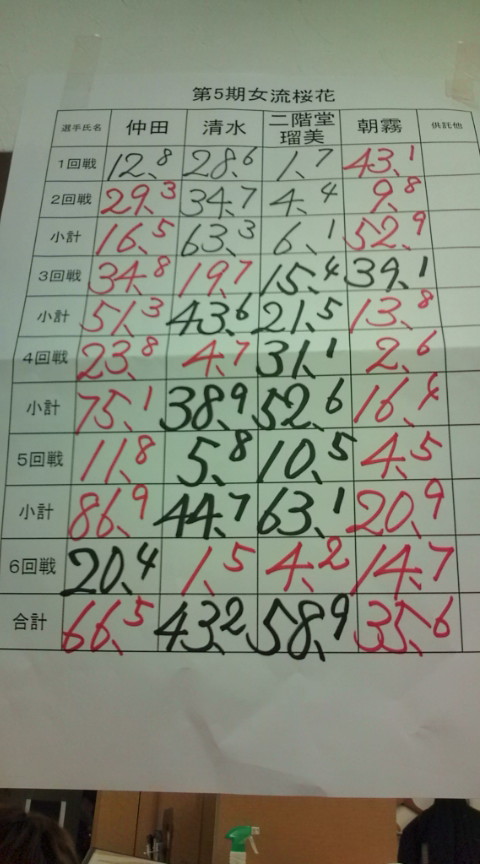 第5期女流桜花
選手氏名 仲田 清水 二階堂瑠美 朝霧 供託他
1回戦 12、8 28、6 1、7 43、1
2回戦 29、3 34、7 4、4 9、8
小計 16、5 63、3 6、1 52、9
3回戦 34、8 19、7 15、4 39、1
小計 51、3 43、6 21、5 13、8
4回戦 23、8 4、7 31、1 2、6
小計 75、1 38、9 52、6 16、4
5回戦 11、8 5、8 10、5 4、5
小計 86、9 44、7 63、1 20、9
6回戦 20、4 1、5 4、2 14、7
合計 66、5 43、2 58、9 35、6